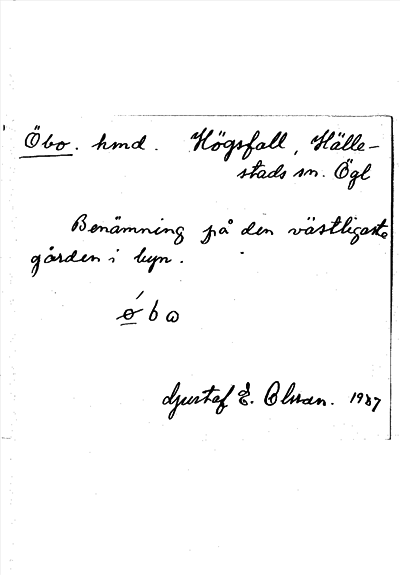 Öbo. hmd. Högsfall, Hälle-
stads sn. Ögl
Benämning på den västligaste
gården i byn.
ǿbω
Gustaf E. Olsson. 1937